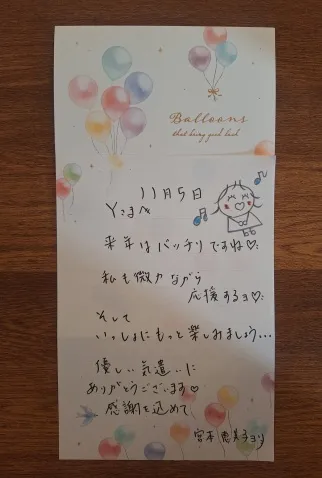 Balloons
that bring good luck
11月5日
Yさまへ
来年はバッチリですね♡
私も微力ながら
応援するョ♡
そして
いっしょにもっと楽しみましょう...
優しい気遣いに
ありがとうございます♡
感謝を込めて
宮本恵美子より